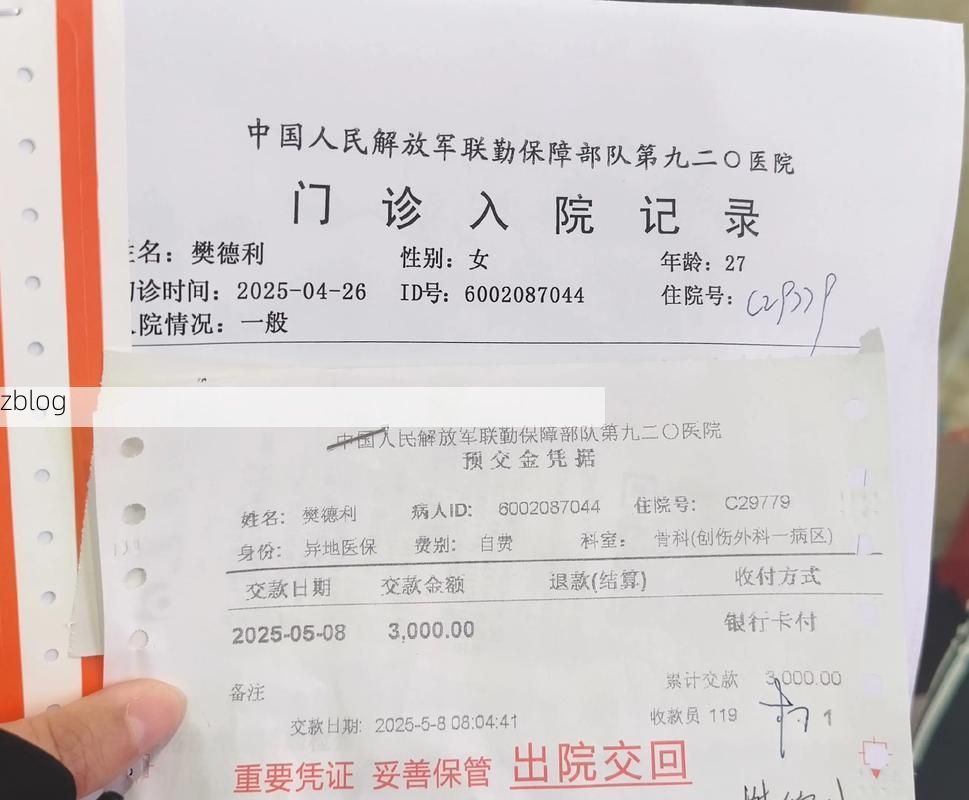 中国人民解放军联勤保障部队第九二〇医院
门诊入院记录
姓名：樊德利 性别：女 年龄：27
诊时间：2025-04-26 ID号：6002087044 住院号：C29779
院情况：一般
zblog
中国人民解放军联勤保障部队第九二〇医院
预交金凭据
姓名： 樊德利 病人ID： 6002087044 住院号： C29779
身份： 异地医保 费别： 自费 科室： 骨科(创伤外科一病区)
交款日期 交款金额 退款(结算) 收付方式
2025-05-08 3,000.00 银行卡付
备注 累计交款 3,000.00
交款日期: 2025-5-8 08:04:41 收款员 119 1
重要凭证 妥善保管 出院交回